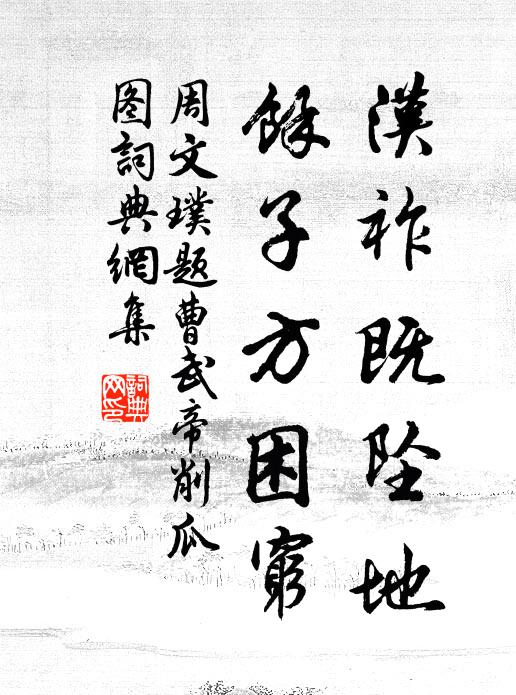 漢祚既坠地
餘子方困窮
周文璞題曹武帝削瓜
图詞典網集
詞典
网印